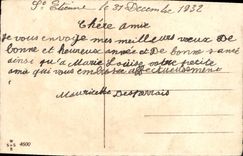 St Etienne le 31 Decembre 1932
Chère amie
Je vous envoye mes meilleurs vœux De
bonne et heureux année et De bonne santé
ainsi qu'a Marie Louise votre petite
ama qui vous embrasse affectueusement
Mauricette Desgarrais
4500